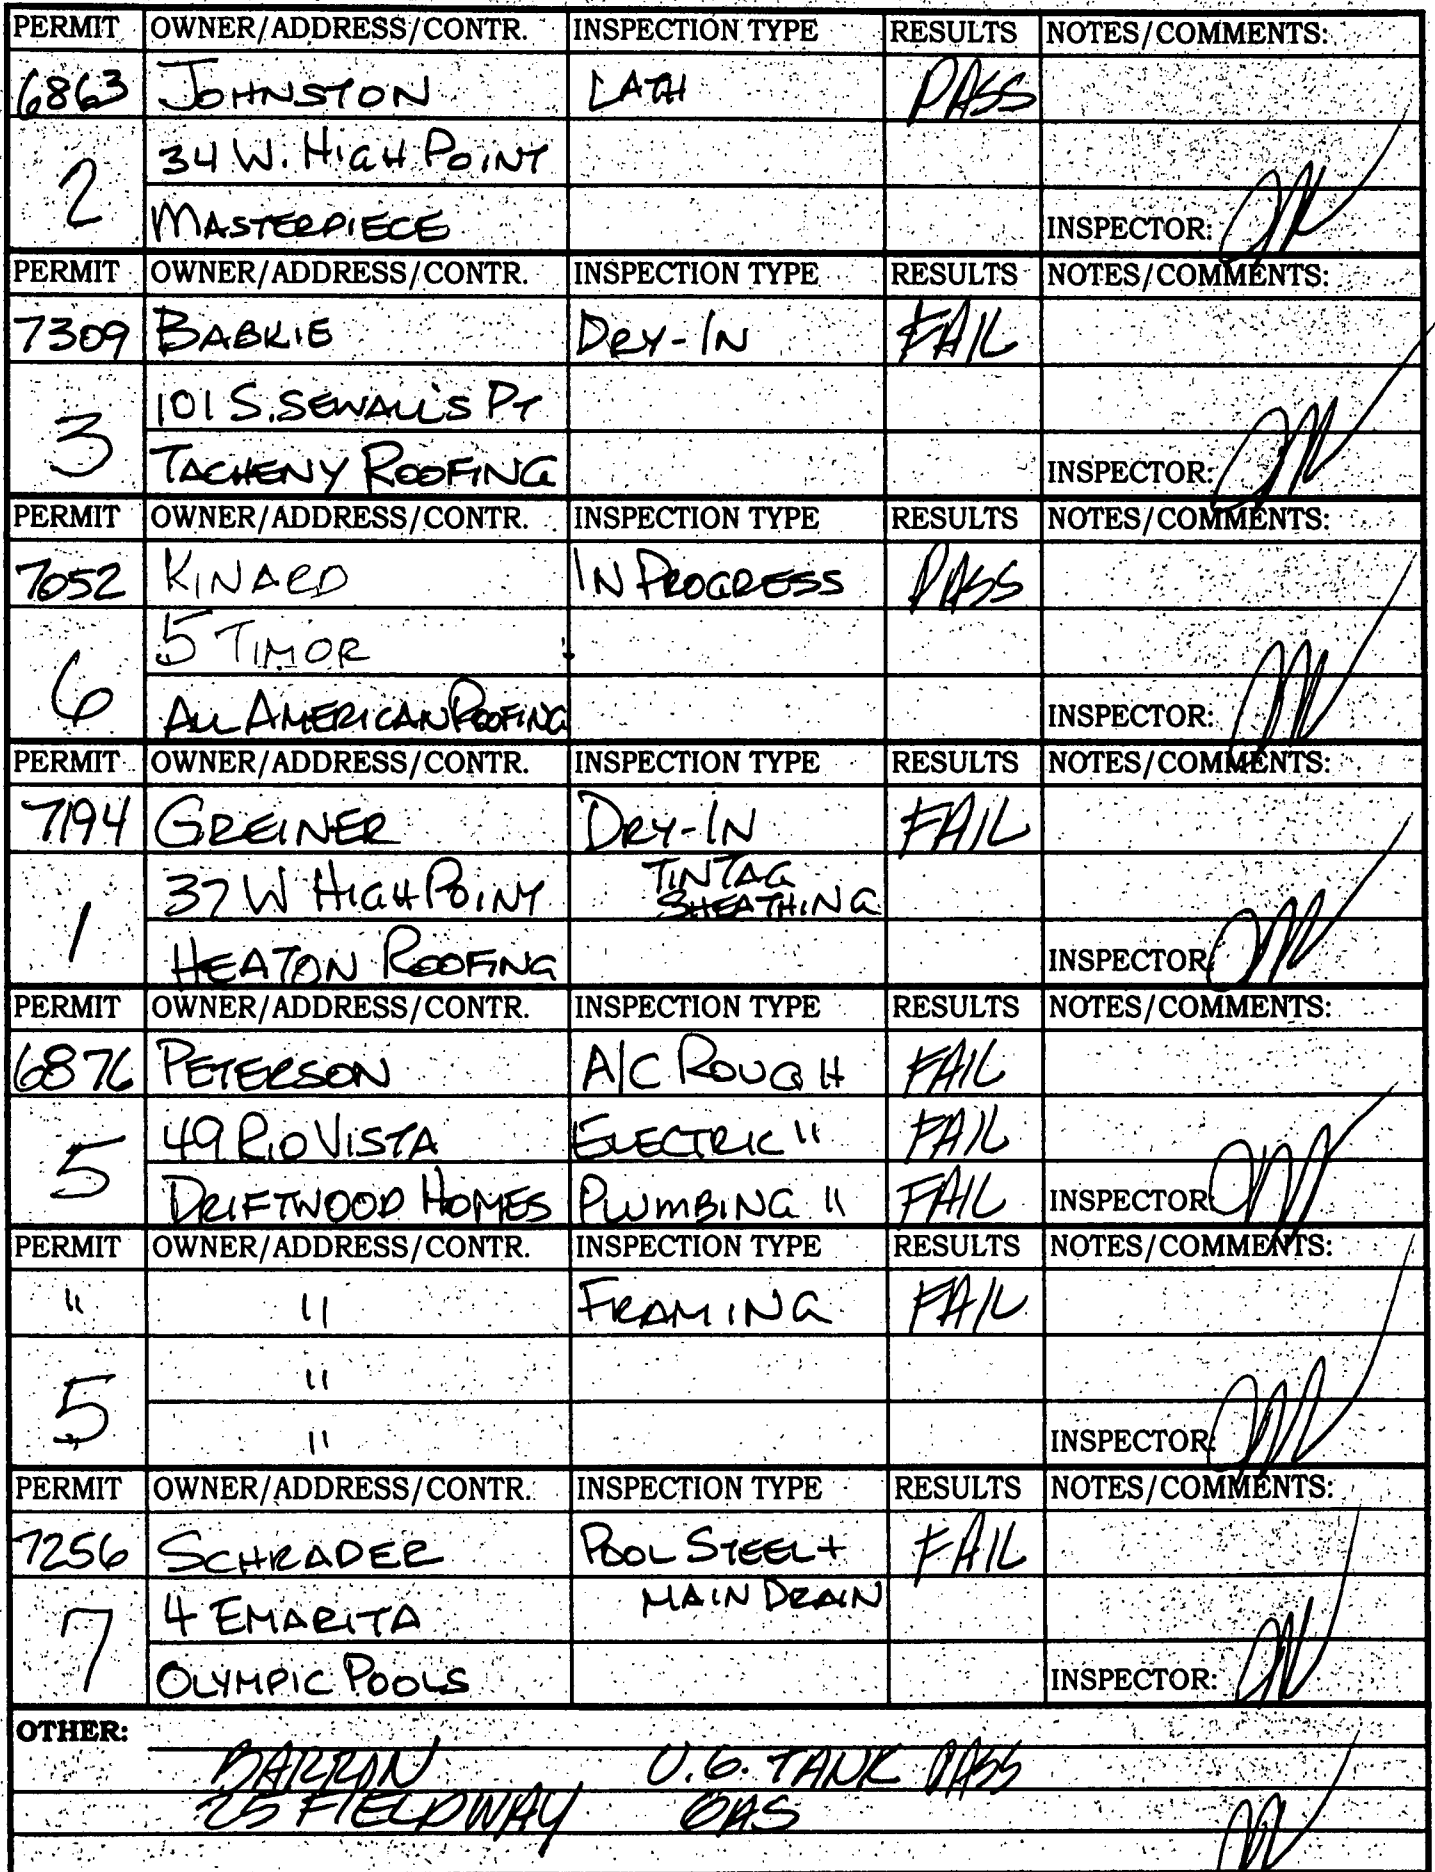 PERMIT OWNER/ADDRESS/CONTR. INSPECTION TYPE RESULTS NOTES/COMMENTS:
6863 JOHNSTON LATH PASS
2 34 W. HIGH POINT
MASTERPIECE INSPECTOR:
PERMIT OWNER/ADDRESS/CONTR. INSPECTION TYPE RESULTS NOTES/COMMENTS:
7309 BABKIE DRY-IN FAIL
3 101 S. SEWALL'S PT
TACHENY ROOFING INSPECTOR:
PERMIT OWNER/ADDRESS/CONTR. INSPECTION TYPE RESULTS NOTES/COMMENTS:
7052 KINARD IN PROGRESS PASS
6 5 TIMOR
ALL AMERICAN ROOFING INSPECTOR:
PERMIT OWNER/ADDRESS/CONTR. INSPECTION TYPE RESULTS NOTES/COMMENTS:
7194 GREINER DRY-IN FAIL
1 37 W HIGH POINT TINTAG
SHEATHING
HEATON ROOFING INSPECTOR:
PERMIT OWNER/ADDRESS/CONTR. INSPECTION TYPE RESULTS NOTES/COMMENTS:
6876 PETERSON A/C ROUGH FAIL
5 49 RIO VISTA ELECTRIC " FAIL
DRIFTWOOD HOMES PLUMBING " FAIL INSPECTOR:
PERMIT OWNER/ADDRESS/CONTR. INSPECTION TYPE RESULTS NOTES/COMMENTS:
" " FRAMING FAIL
5 "
" INSPECTOR:
PERMIT OWNER/ADDRESS/CONTR. INSPECTION TYPE RESULTS NOTES/COMMENTS:
7256 SCHRADER POOL STEEL + FAIL
7 4 EMARITA MAIN DRAIN
OLYMPIC POOLS INSPECTOR:
OTHER:
BARRON U.G. TANK PASS
25 FIELDWAY GAS